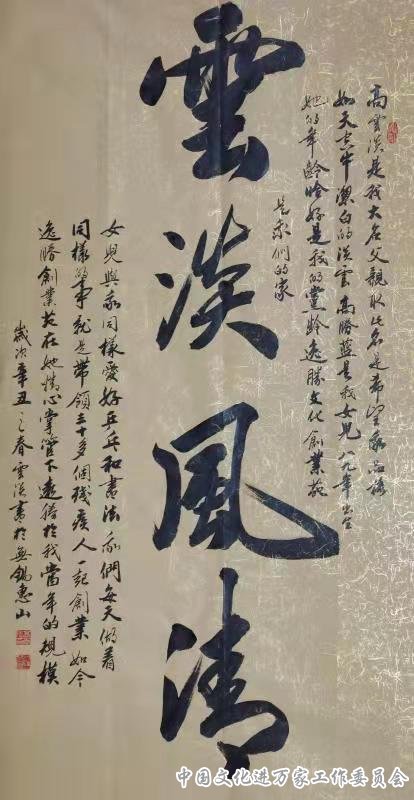 雲淡風清
高雲淡是我大名父親取此名是希望我品格
如天空中潔白的淡雲高勝藍是我女兒八九年出生
她的年齡恰好是我的黨齡逸勝文化創業苑
是我們的家
女兒與我同樣愛好乒乓和書法我們每天做着
同樣的事就是帶領三十多個殘疾人一起創業如今
逸勝創業苑在她精心掌管下遠勝於我當年的規模
歲次辛丑之春雲淡書於無錫惠山
中国文化进万家工作委员会